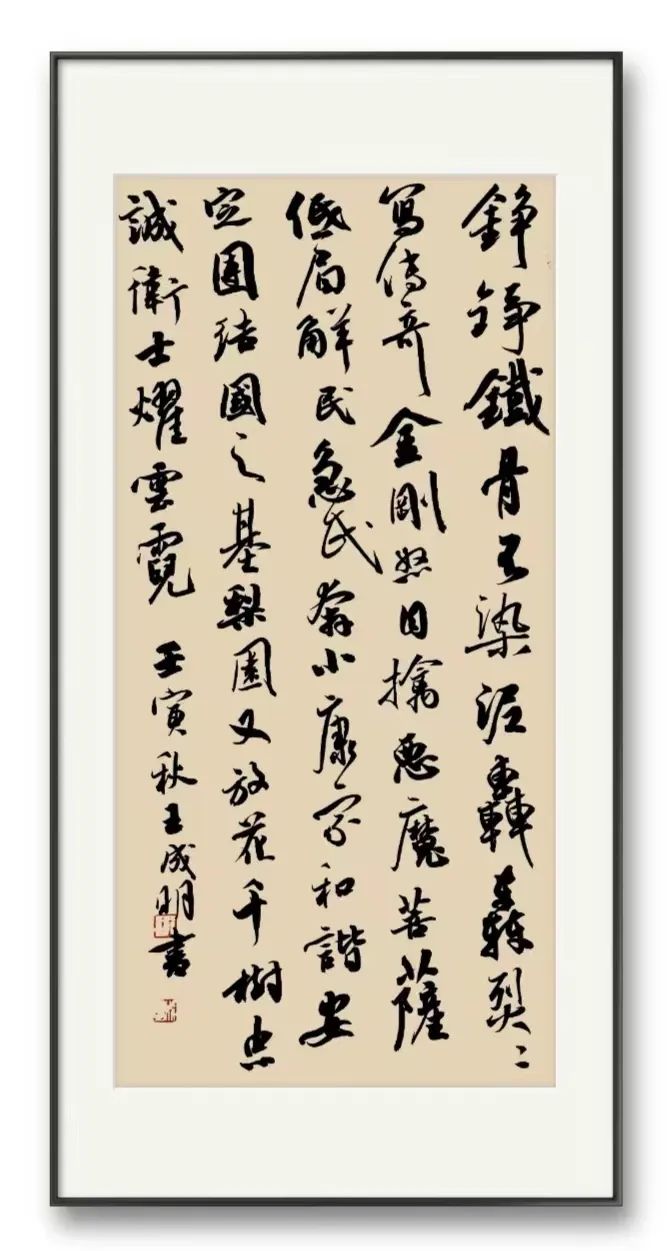 錚錚鐵骨不染泥轟轟烈〻
寫傳奇金剛怒目擒惡魔菩薩
低眉解民急民奔小康家和諧安
定團結國之基梨園又放花千樹忠
誠衛士耀雲霓 壬寅秋王成明書